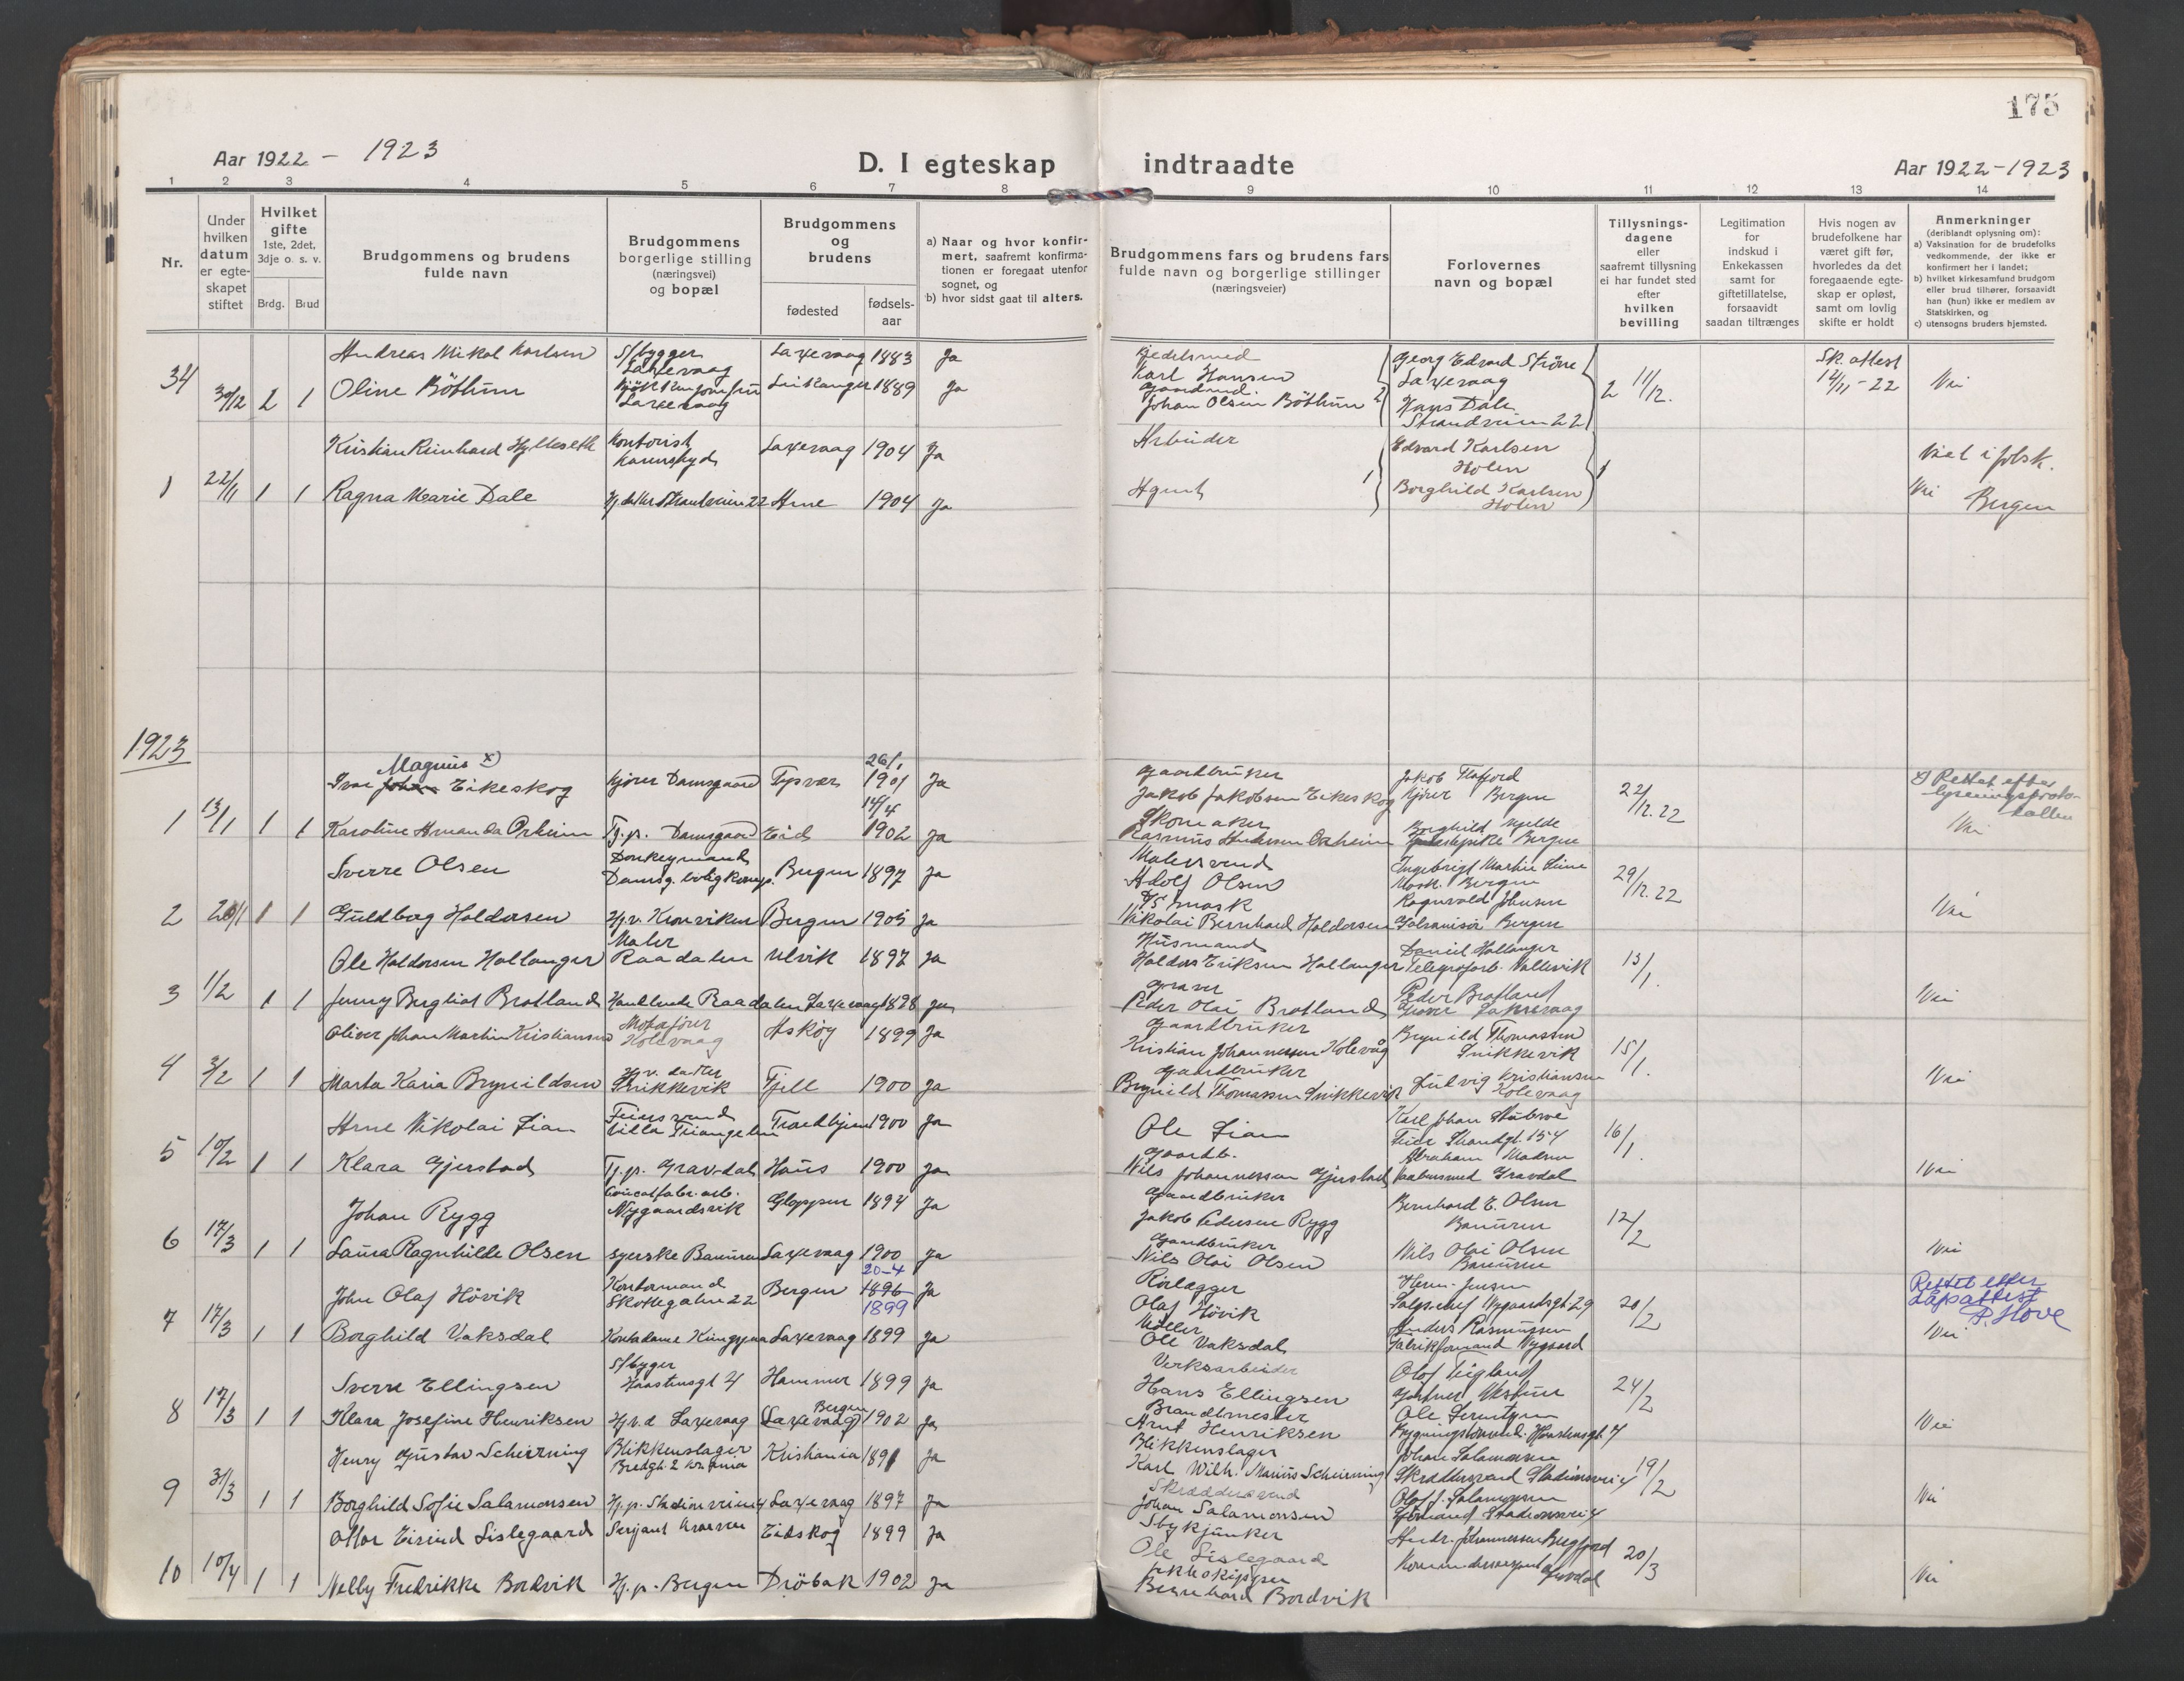 175
Aar 1922 - 1923
D. I egteskap indtraadte
Aar 1922-1923
1 2 3 4 5 6 7 8 9 10 11 12 13 14
Nr.
Under hvilken datum er egteskapet stiftet
Hvilket gifte 1ste, 2det, 3dje o. s. v.
Brdg. Brud
Brudgommens og brudens fulde navn
Brudgommens borgerlige stilling (næringsvei) og bopæl
Brudgommens og brudens
fødested
fødselsaar
a) Naar og hvor konfirmert, saafremt konfirmationen er foregaat utenfor sognet, og
b) hvor sidst gaat til alters.
Brudgommens fars og brudens fars fulde navn og borgerlige stillinger (næringsveier)
Forlovernes navn og bopæl
Tillysningsdagene eller saafremt tillysning ei har fundet sted efter hvilken bevilling
Legitimation for indskud i Enkekassen samt for giftetillatelse, forsaavidt saadan tiltrænges
Hvis nogen av brudefolkene har været gift før, hvorledes da det foregaaende egteskap er opløst, samt om lovlig skifte er holdt
Anmerkninger (deriblandt oplysning om):
a) Vaksination for de brudefolks vedkommende, der ikke er konfirmert her i landet;
b) hvilket kirkesamfund brudgom eller brud tilhører, forsaavidt han (hun) ikke er medlem av Statskirken, og
c) utensogns bruders hjemsted.
Andreas Mikal Karlsen Sfbygger Laxevaag Laxevaag 1883 Ja Kjedelsmed Karl Hansen Georg Edvard Ströne Laxevaag Sk. attest 14/11-22
34 30/12 2 1 Oline Böthun Laxevaag Leikanger 1889 Ja Gaardmd. Johan Olsen Böthun Hans Dale Strandveien 22 2 11/12. Vei
Kristian Reinhard Hylleseth Kontorist Laxevaag 1904 Ja Arbeider Edvard Karlsen Holen Viet i folsk.
1 22/11 1 1 Ragna Marie Dale Hj. datter Strandveien 22 Arne 1904 Ja Agent Borghild Karlsen Holen Vei Bergen
1923
Ivar Johan Magnus x) Eikeskog Kjører Damsgaard Tysvær 26/1 1901 Ja Gaardbruker Jakob Jakobsen Eikeskog Jakob Flafjord Kjører Bergen 22/12. 22 x) Rettet efter lysningsprotokollen
1 13/1 1 1 Karoline Amanda Orheim Tj.p. Damsgaard Eid 14/4 1902 Ja Skomaker Rasmus Andersen Orheim Borghild Mjelde Bergen Vei
Sverre Olsen Donkeymand Damsg. boligkomp. Bergen 1897 Ja Malersvend Adolf Olsen Ingebrigt Martin Bergen 29/12. 22
2 20/1 1 1 Guldborg Haldorsen Hj.v. Kronviken Bergen 1905 Ja Nikolai Bernhard Haldorsen Ragnvald Johnsen Bergen Vei
Ole Haldorsen Hallanger Maler Raadalen Ulvik 1897 Ja Husmand Haldor Eriksen Hallanger Daniel Hallanger Telegrafarb. 13/1.
3 1/2 1 1 Jenny Bergliot Bratland Raadalen Laxevaag 1898 Ja Graver Peder Olai Bratland Peder Bratland Graver Laksevaag Vei
Oliver Johan Martin Kristiansen Motorfører Kolevaag Askøy 1899 Ja Gaardbruker Kristian Johannessen Kolevåg Brynild Thomassen Snikkevik 15/1.
4 3/2 1 1 Marta Karia Brynildsen Hj.v. datter Snikkevik Fjell 1900 Ja Gaardbruker Brynild Thomassen Snikkevik Ludvig Kristiansen Kolevaag Vei
Arne Nikolai Lian Feiersvend Villa Triangelen Trondhjem 1900 Ja Ole Lian Karl Johan Feier Strandgt. 154 16/1.
5 10/2 1 1 Klara Gjerstad Tj.p. Gravdal Haus 1900 Ja Gaardb. Nils Johannessen Gjerstad Abraham Madsen Gravdal Vei
Johan Rygg Nygaardsvik Gloppen 1894 Ja Gaardbruker Jakob Pedersen Rygg Bernhard E. Olsen 12/2
6 17/3 1 1 Laura Ragnhilde Olsen Syerske Laxevaag 1900 Ja Gaardbruker Nils Olai Olsen Nils Olai Olsen Vei
John Olaf Hövik Kontormand Skottegaten 22 Bergen 20-4 1896 1899 Ja Rørlægger Olaf Hövik Herm. Jensen Nygaardsgt 29 20/2 Rettet efter dåpsattest P. Hove
7 17/3 1 1 Borghild Vaksdal Kontordame Laxevaag 1899 Ja Möller Ole Vaksdal Anders Rasmussen Fabrikformand Nygaard Vei
Sverre Ellingsen Sfbyger Haastensgt 4 Hammer 1899 Ja Verksarbeider Hans Ellingsen Olaf Vigland Gartner 24/2
8 17/3 1 1 Klara Josefine Henriksen Hj.v.d Laxevaag (Laxevaag) Bergen 1902 Ja Brandtmester Arnt Henriksen Ole Vei
Henry Gustav Scheirning Blikkenslager Bredgt. 2 Kr.ania Kristiania 1891 Ja Blikkenslager Karl Wilh. Marius Scheirning Johan Salamonsen Skræddersvend Stadionsvei 4 19/2
9 31/3 1 1 Borghild Sofie Salamonsen Hj.p. Stadionveien 4 Laxevaag 1897 Ja Skræddersvend Johan Salamonsen Olaf J. Salamonsen Stadionsvei 4 Vei
Ottar Eivind Lislegaard Serjant Eidskog 1899 Ja Ole Lislegaard Andr. Johannessen Bergfjord 20/3
10 10/4 1 1 Nelly Fredrikke Bordvik Hj.p. Bergen Dröbak 1902 Ja Bernhard Bordvik Vei